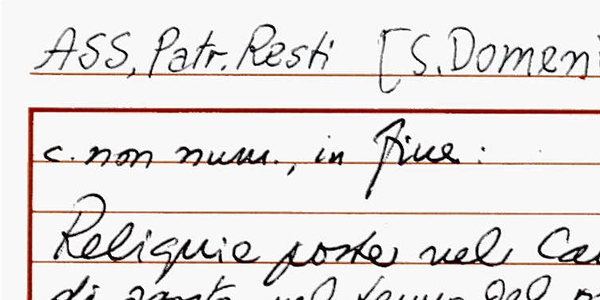 ASS, Patr. Resti [S. Domeni
c. non num., in fine:
Reliquie poste nel Ca
di nel del